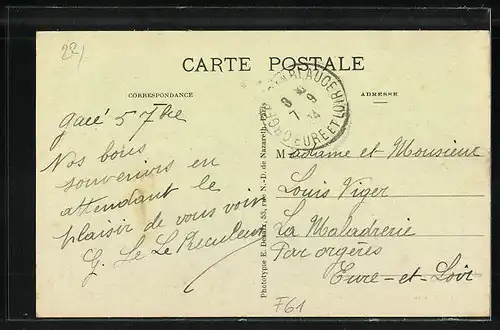 22/
CARTE POSTALE
CORRESPONDANCE
ADRESSE
5 7bre
Nos bons
souvenirs en
attendant le
plaisir de vous voir
G. Le
Madame et Monsieur
Louis Viger
La Maladrerie
Par orgères
Eure-et-Loir
EURE ET LOIR
8 9
7 14
Phototype E. 53, rue N.-D. de Nazareth, Paris
F61